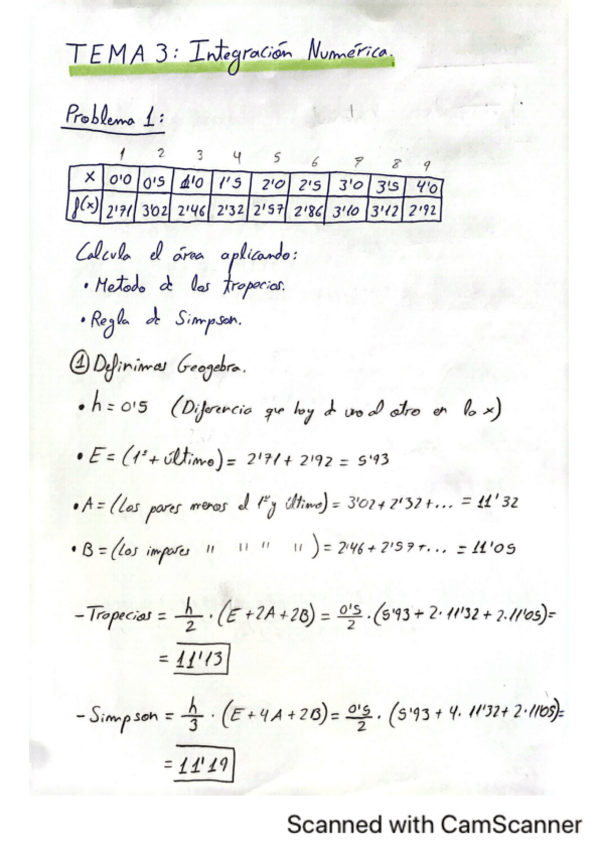 TEMA 3: Integración Numérica.
Problema 1:
1 2 3 4 5 6 7 8 9
x 0'0 0'5 1'0 1'5 2'0 2'5 3'0 3'5 4'0
f(x) 2'71 3'02 2'46 2'32 2'57 2'86 3'10 3'12 2'92
Calcula el área aplicando:
• Metodo de los tropecios.
• Regla de Simpson.
① Definimos Geogebra.
• h = 0'5 (Diferencia que hay d uno al otro en la x)
• E = (1º + último) = 2'71 + 2'92 = 5'93
• A = (Los pares menos el 1º y último) = 3'02 + 2'32 + ... = 11'32
• B = (Los impares " " " ") = 2'46 + 2'57 + ... = 11'05
- Tropecios = h/2 · (E + 2A + 2B) = 0'5/2 · (5'93 + 2 · 11'32 + 2 · 11'05) =
= 11'13
- Simpson = h/3 · (E + 4A + 2B) = 0'5/2 · (5'93 + 4 · 11'32 + 2 · 11'05) =
= 11'19
Scanned with CamScanner